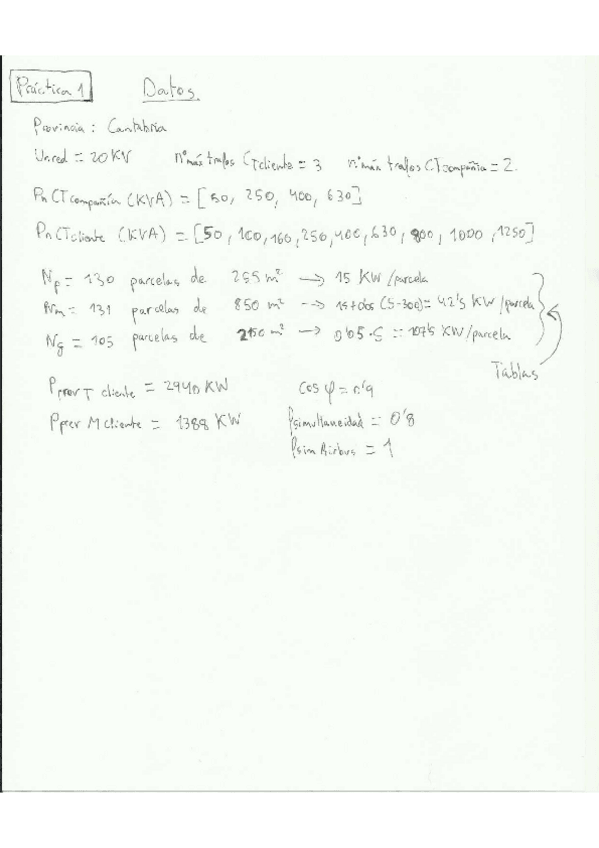 Práctica 1 Datos.
Provincia: Cantabria
Un red = 20 KV nº máx trafos CT cliente = 3 nº máx trafos CT compañia = 2
Pn CT compañía (KVA) = [50, 250, 400, 630]
Pn CT cliente (KVA) = [50, 100, 160, 250, 400, 630, 800, 1000, 1250]
Np = 130 parcelas de 255 m² → 15 KW/parcela
Nm = 131 parcelas de 850 m² → 15+0'05 (S-300) = 42'5 KW/parcela
Ng = 105 parcelas de 2150 m² → 0'05·S = 107'5 KW/parcela
Tablas
Pprev T cliente = 2940 KW cos φ = 0'9
Pprev M cliente = 1388 KW fsimultaneidad = 0'8
fsim Airbus = 1